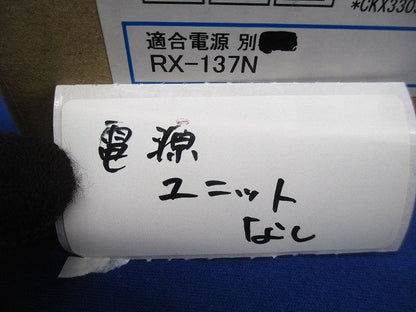 *CKX330
適合電源 別
RX-137N
電源
ユニット
なし